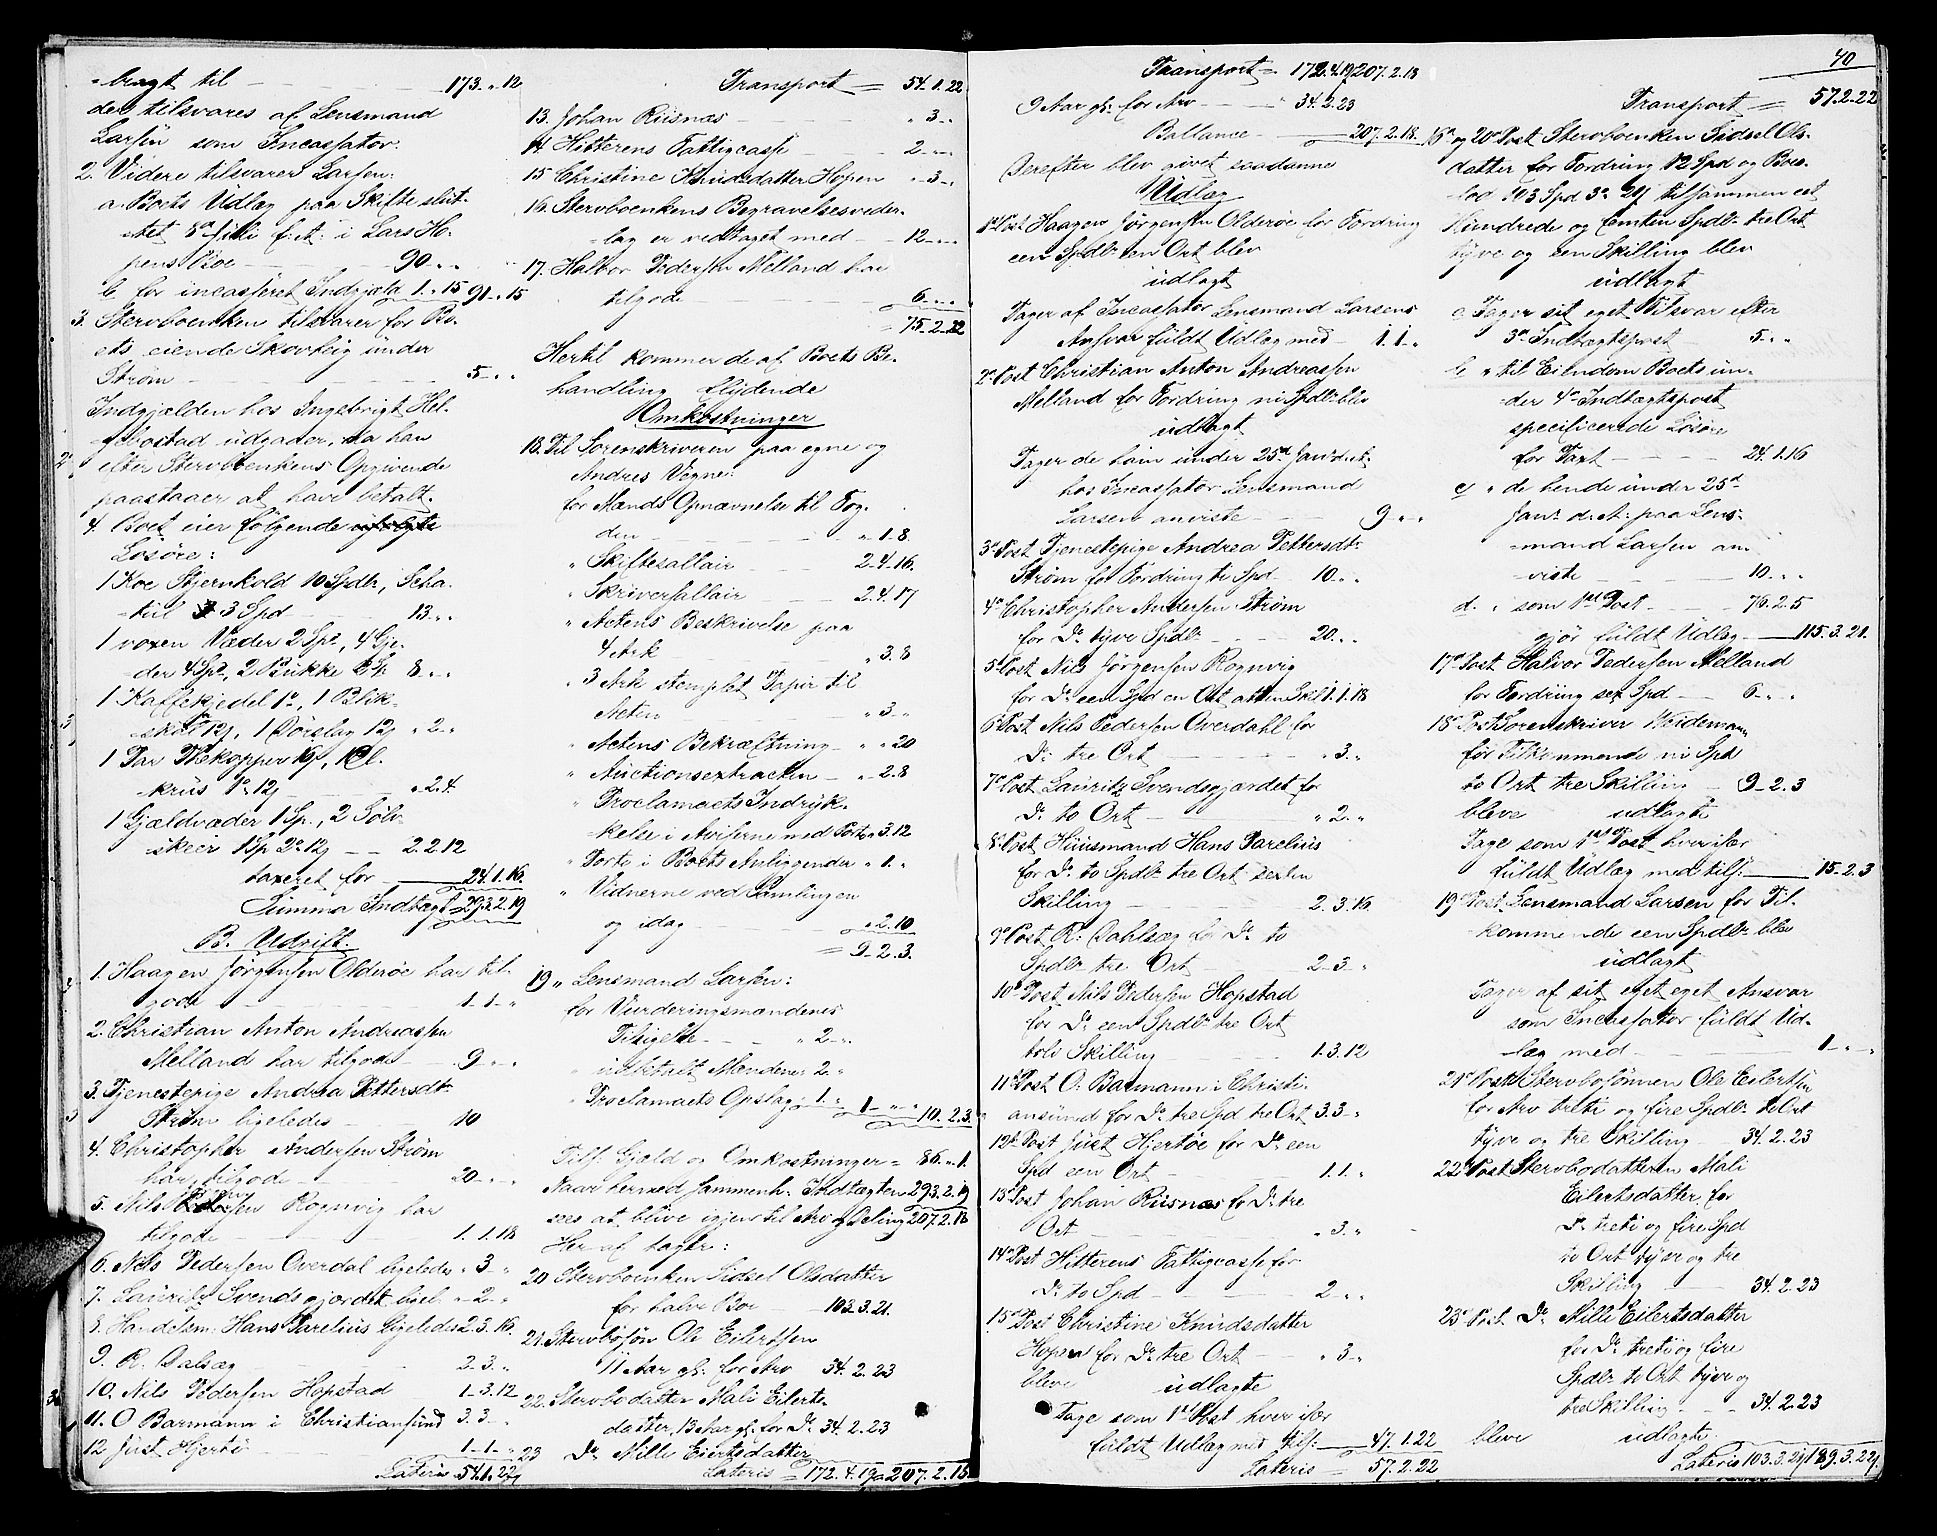 -bragt til — 173 „ 12
der tilsvares af Lensmand
Larsen som Incassator.
2. Videre tilsvarer Larsen:
a. Boets Udlæg paa Skifte slut-
tet 8de Juli f: A: i Lars Ho-
pens Boe — 90 „ „
b for incasseret Indgjæld 1 „ 15 91 „ 15
3. Stervboenken tilsvarer for Bo-
ets eiende Skovteig under
Strøm — 5 „ „
Indgjælden hos Ingebrigt Hel-
gebostad udgaaer, da han
efter Stervboenkens Opgivende
paastaaer at have betalt.
4. Boet eier følgende
Løsøre:
1 Koe Stjernkold 10 Spdlr, Scha-
tul 3 Spd — 13 „ „
1 voxen Væder 2 Sp, 4 Gje-
der 4 Sp, 2 Bukke 8 „ „
1 Kaffekjedel 1 , 1 Blik-
12 , 1 Dørslag 12 „ 2 „
1 Par Thekopper 16 , 1 Øl-
krus 1 12 „ 2. 4.
1 Gjældvæder 1 Sp., 2 Sølv-
skeer 1 Sp 2 12 — 2. 2. 12
taxeret for — 24. 1. 16.
Summa Indtægt 293. 2. 19
B. Udgift.
1. Haagen Jørgensen Olderøe har til-
gode — 1. 1. „
2. Christian Anton Andreassen
Melland har tilgode — 9 „ „
3. Tjenestepige Andrea Pettersdtr
Strøm ligeledes — 10
4. Christopher Andersen Strøm
har tilgode — 20 „ „
5. Nils Rognvig har
tilgode — 1. 1. 18
6. Nils Pedersen Overdal ligeledes „ 3 „
7. Lauritz Svendsgjærdet ligel. „ 2 „
8. Handelsm: Hans Parelius ligeledes 2. 3. 16.
9. R. Dalsæg — 2. 3. „
10. Nils Pedersen Hopstad — 1. 3. 12
11. O Barmann i Christiansund 3. 3. „
12 Just Hjertø — 1. 1. „
Lateris 54. 1. 22
Transport = 54. 1. 22
13. Johan Riisnæs — „ 3 „
14. Hitterens Fattigcasse — 2 „ „
15 Christine Knudsdatter Hopen „ 3 „
16. Stervboenkens Begravelsesveder-
lag er vedtaget med — 12 „ „
17. Halvor Pedersen Melland har
tilgode — 6 „ „
75. 2. 22
Hertil kommer de af Boets Be-
handling flydende
Omkostninger
18. Til Sorenskriveren paa egne og
Andres Vegne:
for Mænds Opnævnelse til Fog-
den — „ 1. 8.
„ Skiftesallair — 2. 4. 16.
„ Skriversallair — 2. 4. 17
„ Actens Beskrivelse paa
4 Ark — „ 3. 8
„ 3 Ark stemplet Papir til
Acten — „ 3 „
„ Actens Bekræftning — „ „ 20
„ Auctionsextracten — „ 2. 8
„ Proclamaets Indryk-
kelse i Aviserne med Porto „ 3. 12
„ Porto i Boets Anliggender „ 1. „
„ Vidnerne ved Samlingen
og idag — „ 2. 10
= 9. 2. 3.
19 „ Lensmand Larsen:
for Vurderingsmændenes
Tilsigelse — „ 2 „
„ udbetalt Mændene 2 „
„ Proclamaets Opslag 1. „ 1 „ „ 10. 2. 3.
Tils. Gjæld og Omkostninger = 86. „ 1.
Naar hermed sammenh. Indtægten 293. 2. 19
sees at blive igjen til Arv og Deling 207. 2. 18
Her af tager:
20 Stervboenken Sidsel Olsdatter
for halve Boe — 103. 3. 21.
21. Stervbosøn Ole Eilertsen
11 Aar gl: for Arv 34. 2. 23
22. Stervbodatter Mali Eilerts-
datter, 13 Aar gl: for Do 34. 2. 23
23 Do Mille Eilertsdatter
Lateris = 172. 4. 19 207. 2. 18
40
Transport = 172. 4. 19 207. 2. 18
9 Aar gl: for Arv — 34. 2. 23
Ballance — 207. 2. 18.
Derefter blev givet saadanne
Udlæg
1ste Post Haagen Jørgensen Olderøe for Fordring
een Spdlr een Ort blev
udlagt
Tager af Incassator Lensmand Larsens
Ansvar fuldt Udlæg med — 1. 1. „
2den Post Christian Anton Andreassen
Melland for Fordring ni Spdlr blev
udlagt
Tager de ham under 25de Janr d. A.
hos Incassator Lensmand
Larsen anviste — 9 „ „
3die Post Tjenestepige Andrea Pettersdtr
Strøm for Fordring ti Spd — 10 „ „
4de Christopher Andersen Strøm
for Do tyve Spdlr — 20 „ „
5te Post Nils Jørgensen Rognvig
for Do een Spd en Ort atten Skil 1. 1. 18
6te Post Nils Pedersen Overdahl for
Do tre Ort — „ 3. „
7de Post Lauritz Svendsgjærdet for
Do to Ort — „ 2. „
8de Post Huusmand Hans Parelius
for Do to Spdlr tre Ort sexten
Skilling — 2. 3. 16
9de Post R: Dahlsæg for Do to
Spdlr tre Ort — 2. 3. „
10de Post Nils Pedersen Hopstad
for Do een Spdlr tre Ort
tolv Skilling — 1. 3. 12
11te Post O. Barmann i Christi-
ansund for Do tre Spd tre Ort 3. 3. „
12te Post Just Hjertøe for Do een
Spd een Ort — 1. 1. „
13de Post Johan Riisnæs for Do tre
Ort — „ 3. „
14de Post Hitterens Fattigcasse for
Do to Spd — 2 „ „
15de Post Christine Knudsdatter
Hopen for Do tre Ort — „ 3. „
bleve udlagte
Tage som 1ste Post hver især
fuldt Udlæg med tils: — 47. 1. 22
Lateris — 57. 2. 22
Transport = 57. 2. 22
16de og 20de Post Stervboenken Sidsel Ols-
datter for Fordring 12 Spd og Boes-
lod 103 Spd 3 21 tilsammen et
Hundrede og femten Spdlr tre Ort
tyve og een Skilling blev
udlagt
a Tager sit eget Tilsvar efter
3die Indtægtspost — 5 „ „
b „ til Eiendom Boets un-
der 4de Indtægtspost
specificerede Løsøre
for Taxt — 24. 1. 16
c „ de hende under 25de
Janr d: A: paa Lens-
mand Larsen an-
viste — 10 „ „
d. „ som 1ste Post — 76. 2. 5
gjør fuldt Udlæg — 115. 3. 21.
17de Post Halvor Pedersen Melland
for Fordring sex Spd — 6 „ „
18de Post Sorenskriver Weidemann
for Tilkommende ni Spd
to Ort tre Skilling — 9. 2. 3
bleve udlagte
Tage som 1ste Post hver især
fuldt Udlæg med tils: — 15. 2. 3
19de Post Lensmand Larsen for Til-
kommende een Spdlr blev
udlagt
Tager af sit eget eget Ansvar
som Incassator fuldt Ud-
læg med — 1 „ „
21de Post Stervbosønnen Ole Eilertsen
for Arv treti og fire Spdlr to Ort
tyve og tre Skilling — 34. 2. 23
22de Post Stervbodatteren Mali
Eilertsdatter for
Do treti og fire Spd
to Ort tyve og tre
Skilling — 34. 2. 23
23de Post Do Mille Eilertsdatter
for Do treti og fire
Spdlr to Ort tyve og
tre Skilling — 34. 2. 23
bleve udlagte
Lateris 103. 3. 21 189. 3. 22